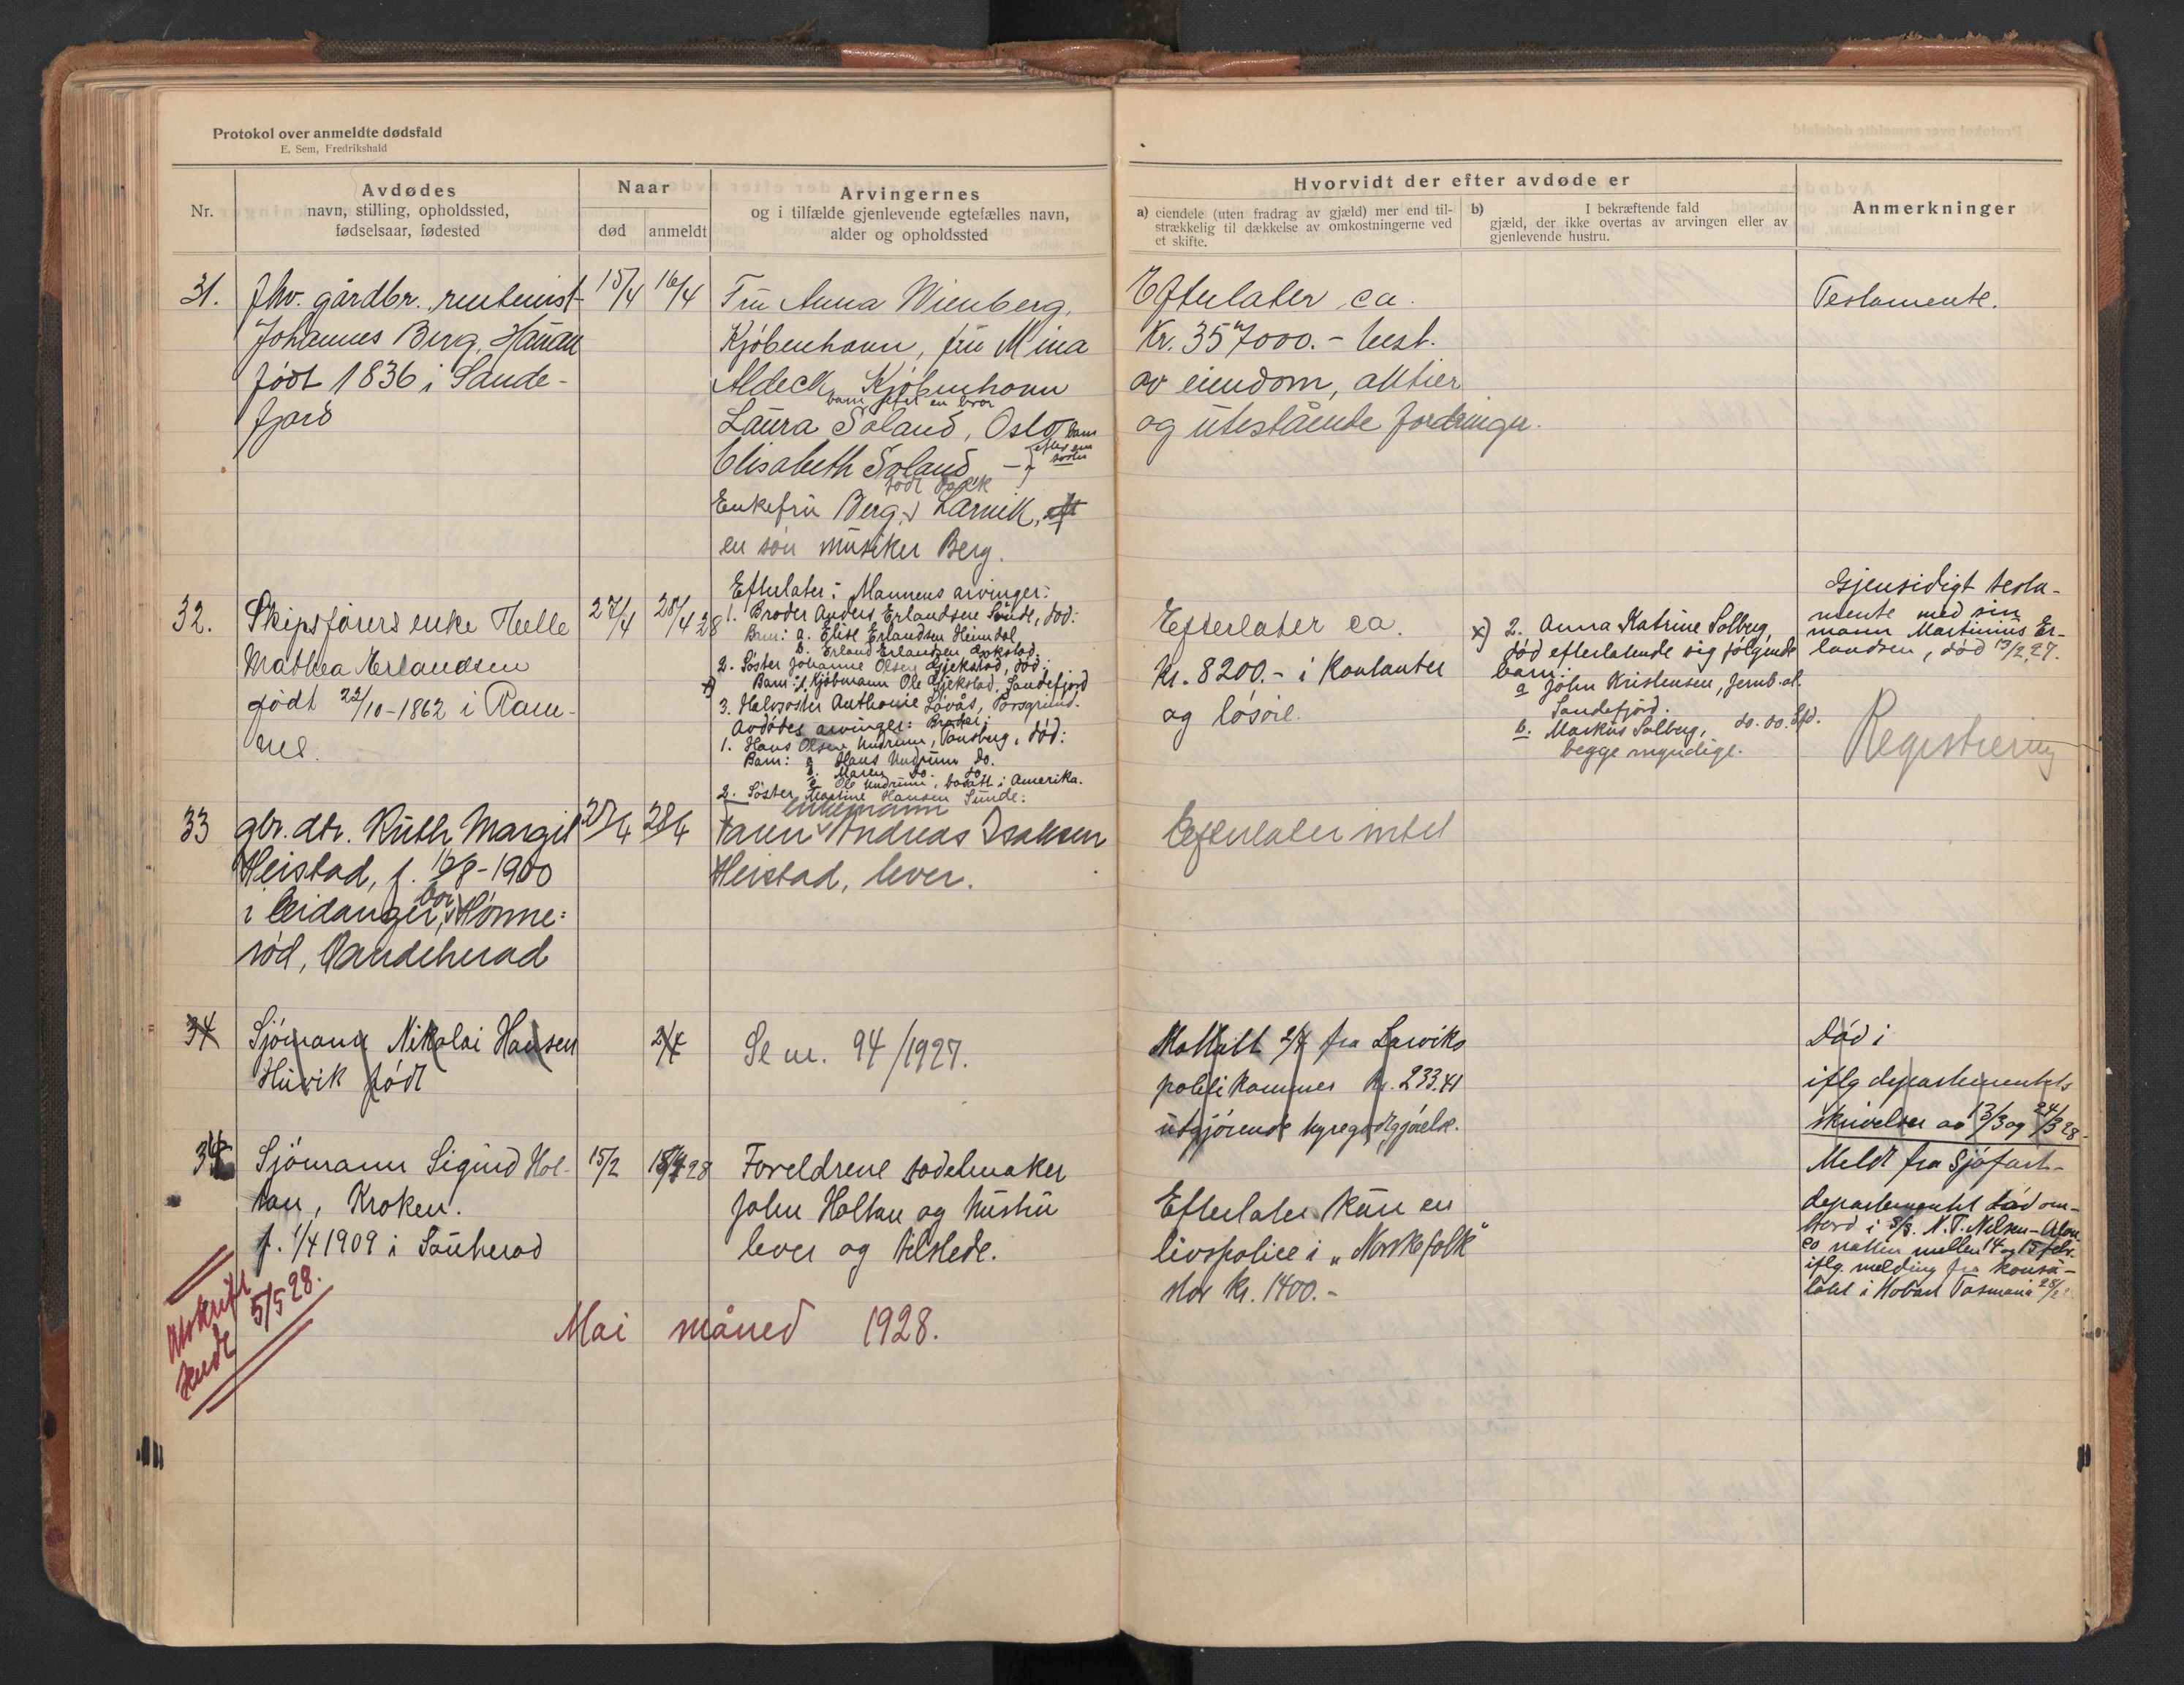 Protokol over anmeldte dødsfald
E. Sem, Fredrikshald
Nr.
Avdødes
navn, stilling, opholdssted,
fødselsaar, fødested
Naar
død
anmeldt
Arvingernes
og i tilfælde gjenlevende egtefælles navn,
alder og opholdssted
Hvorvidt der efter avdøde er
a) eiendele (uten fradrag av gjæld) mer end til-
strækkelig til dækkelse av omkostningerne ved
et skifte.
b) I bekræftende fald
gjæld, der ikke overtas av arvingen eller av
gjenlevende hustru.
Anmerkninger
31.
fhv. gårdbr. rentenist
Johannes Berg, Hauan
født 1836 i Sande-
fjord
15/4
16/4
Fru Anna Wienberg,
Kjøbenhavn, fru Mina
Aldeck, Kjøbenhavn
barn efter en bror
Laura Soland, Oslo
Elisabeth Soland -"-
barn efter en søster
født
Enkefru Berg, Larvik,
en søn musiker Berg.
Efterlater ca.
Kr. 357000.- best.
av eiendom, aktier
og utestående fordringer.
Testamente.
32.
Skipsførers enke Helle
Mathea Erlandsen
født 22/10-1862 i Ram-
nes.
27/4
28/4 28
Efterlater: Mannens arvinger:
1. Broder Anders Erlandsen Sunde, død:
Barn: a. Elise Erlandsen Heimdal
b. Erland Erlandsen
2. Søster Johanne Olsen Gjekstad, død:
x) Barn: 1. Kjøbmann Ole Gjekstad. Sandefjord
3. Halvsøster Anthonie Løvås, Porsgrund.
Avdødes arvinger: Broder:
1. Hans Olsen Undrum, Tønsberg, død:
Barn: a Hans Undrum do.
b. Maren do. do.
c Ole Undrum, bosatt i Amerika.
2. Søster, Martine Hansen Sunde:
Efterlater ca.
Kr. 8200.- i Kontanter
og løsøre.
x) 2. Anna Katrine Solberg,
død efterlatende sig følgende
barn:
a John Kristensen, Jernb.
Sandefjord.
b. Markus Solberg, do. do. Sfd.
begge myndige.
Gjensidigt testa-
mente med sin
mann Martinius Er-
landsen, død 13/2 27.
Registrering
33
gbr. dtr. Ruth Margit
Heistad, f. 16/8-1900
i Eidanger, bor Hønne-
rød, Sandeherad
27/4
28/4
enkemann
Faren Andreas Isaksen
Heistad, lever.
Efterlater intet
34
Sjømann Nikolai Hansen
Huvik født
2/4
Se nr. 94/1927.
Mottatt 2/4 fra Larviks
politikammer kr. 233.41
utgjørende hyregodtgjørelse.
Død i
iflg departementets
skrivelser av 13/3 og 24/3 28.
34
Sjømann Sigurd Hol-
tan, Kroken.
f. 1/4 1909 i Sauherad
15/2
18/4 28
Foreldrene sadelmaker
John Holtan og hustru
lever og tilstede.
Efterlater kun en
livspolice i „Norske folk"
stor kr. 1400.-
Meldt fra Sjøfart-
departementet død om-
bord i S/S. N. T. Nielsen-Alon-
so natten mellem 14 og 15 febr.
iflg. melding fra konsu-
latet i Hobart Tasmania
Avskrift
sendt 5/5 28.
Mai måned 1928.